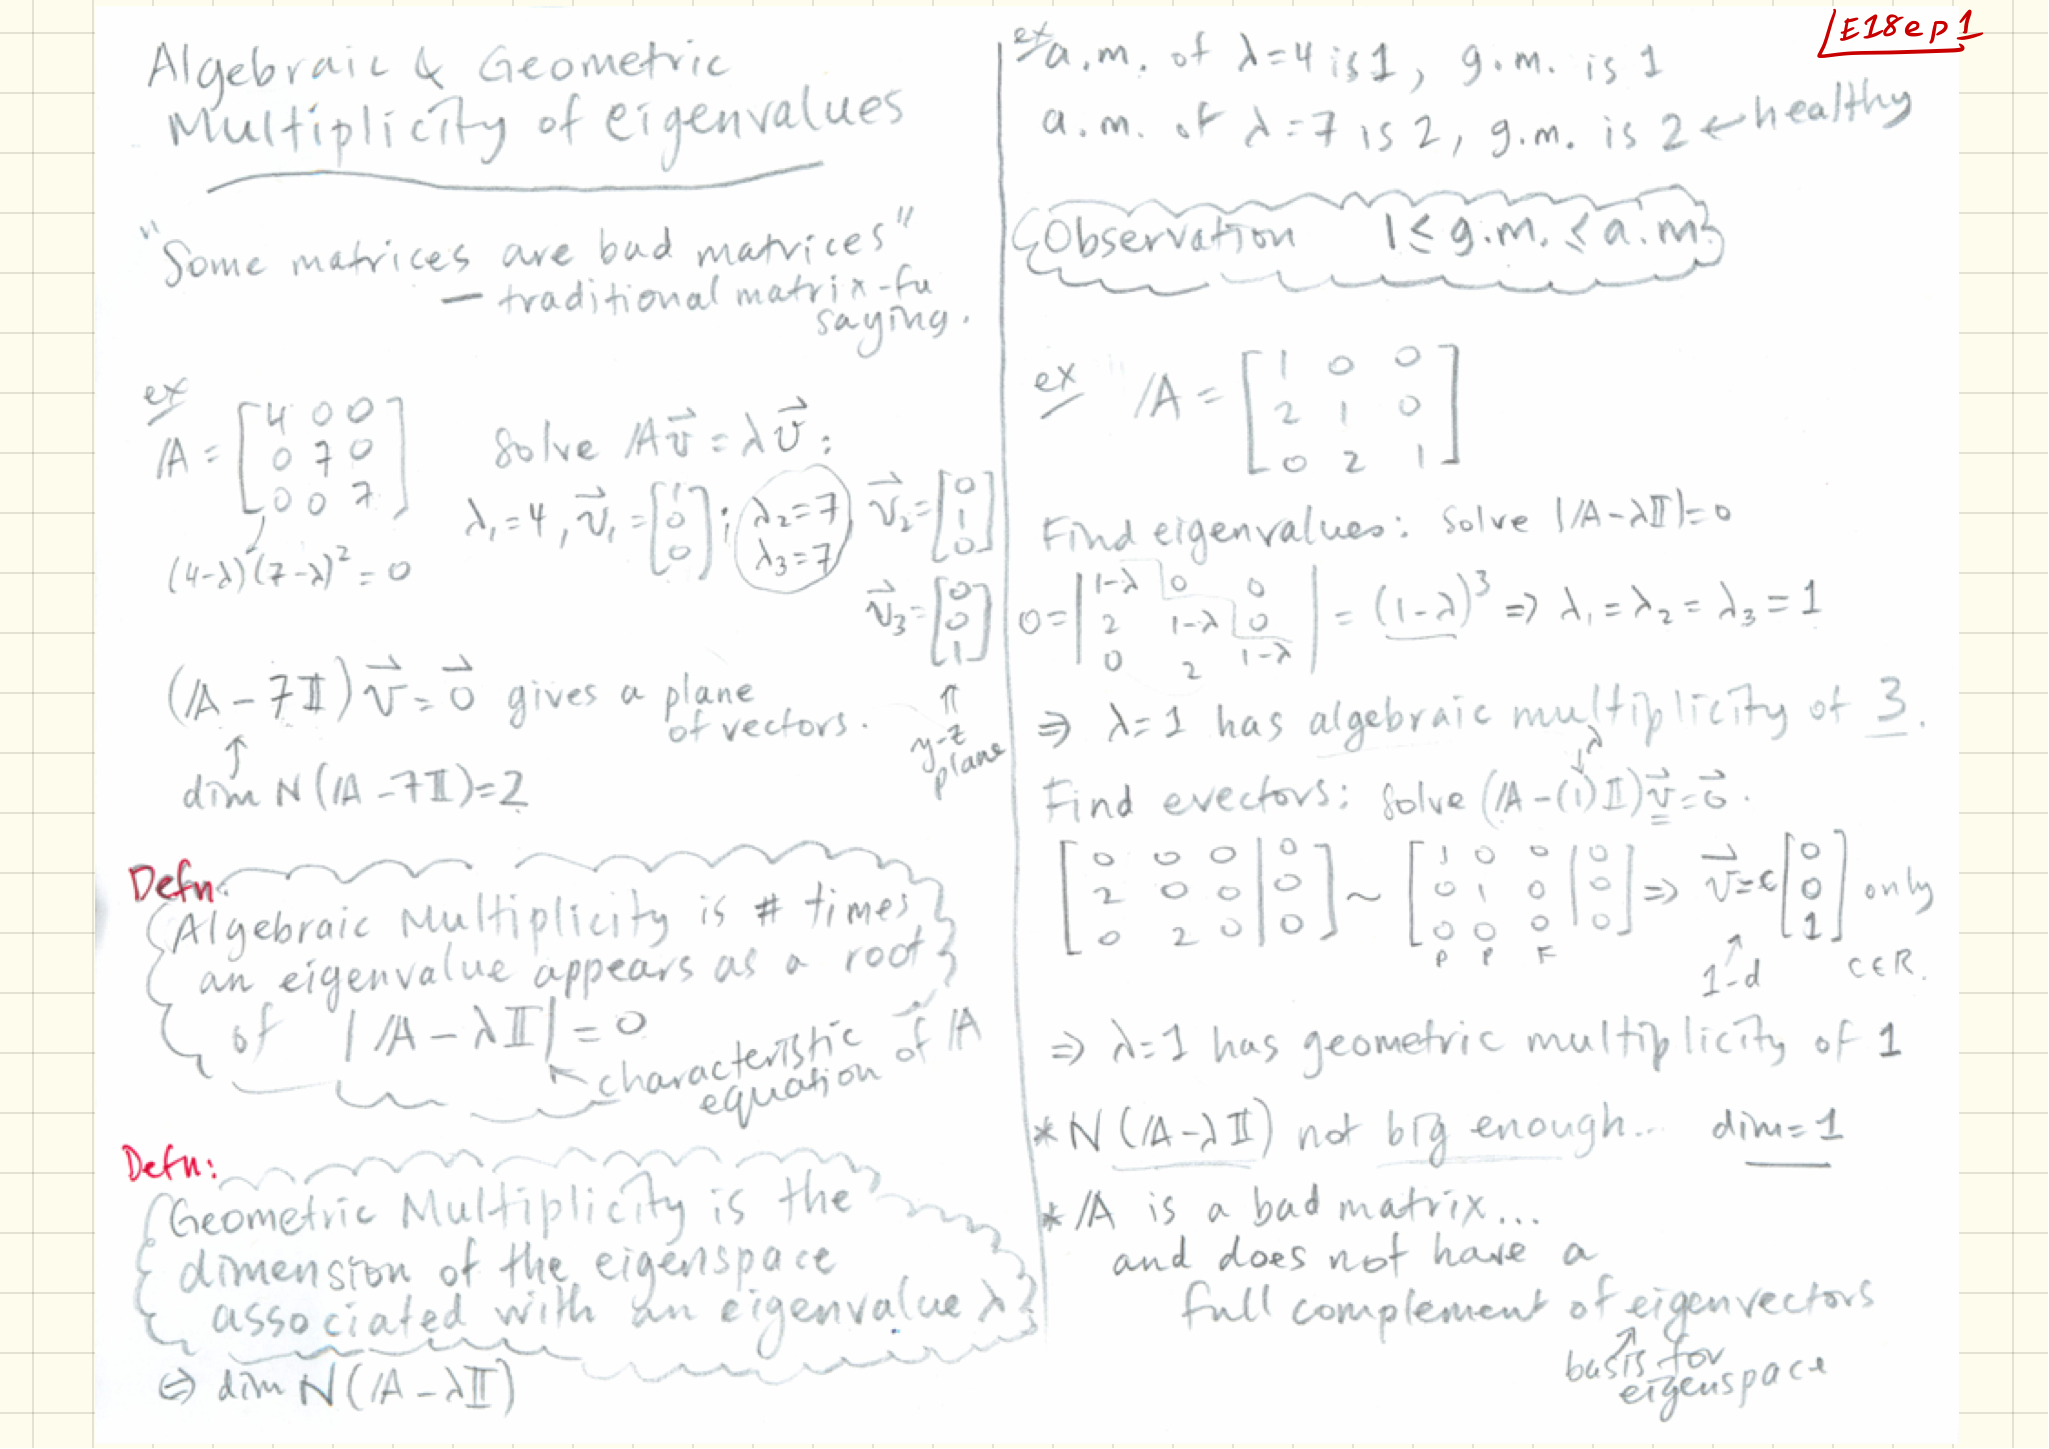 E18ep1
Algebraic & Geometric
Multiplicity of eigenvalues
"Some matrices are bad matrices"
— traditional matrix-fu
saying.
ex
A = [4 0 0
0 7 0
0 0 7]
(4-λ)(7-λ)² = 0
Solve A v⃗ = λ v⃗ :
λ₁ = 4, v⃗₁ = [1 0 0] ; λ₂ = 7 v⃗₂ = [0 1 0]
λ₃ = 7
v⃗₃ = [0 0 1]
⇑
y-z
plane
(A - 7𝕀) v⃗ = 0⃗ gives a plane
of vectors.
↑
dim N(A - 7𝕀) = 2
Defn:
Algebraic Multiplicity is # times
an eigenvalue appears as a root
of |A - λ𝕀| = 0
← characteristic
equation of A
Defn:
Geometric Multiplicity is the
dimension of the eigenspace
associated with an eigenvalue λ
⇔ dim N(A - λ𝕀)
ex a.m. of λ=4 is 1, g.m. is 1
a.m. of λ=7 is 2, g.m. is 2 ← healthy
Observation 1 ≤ g.m. ≤ a.m.
ex A = [1 0 0
2 1 0
0 2 1]
Find eigenvalues: Solve |A-λ𝕀|=0
0 = |1-λ 0 0
2 1-λ 0
0 2 1-λ| = (1-λ)³ ⇒ λ₁ = λ₂ = λ₃ = 1
⇒ λ=1 has algebraic multiplicity of 3.
λ
↓
Find evectors: Solve (A-(1)𝕀)v⃗=0⃗.
[0 0 0 | 0
2 0 0 | 0
0 2 0 | 0] ~ [1 0 0 | 0
0 1 0 | 0
0 0 0 | 0] ⇒ v⃗ = c [0 0 1] only
P P F
↑
1-d
c∈R.
⇒ λ=1 has geometric multiplicity of 1
* N(A-λ𝕀) not big enough... dim=1
* A is a bad matrix...
and does not have a
full complement of eigenvectors
↗
basis for
eigenspace